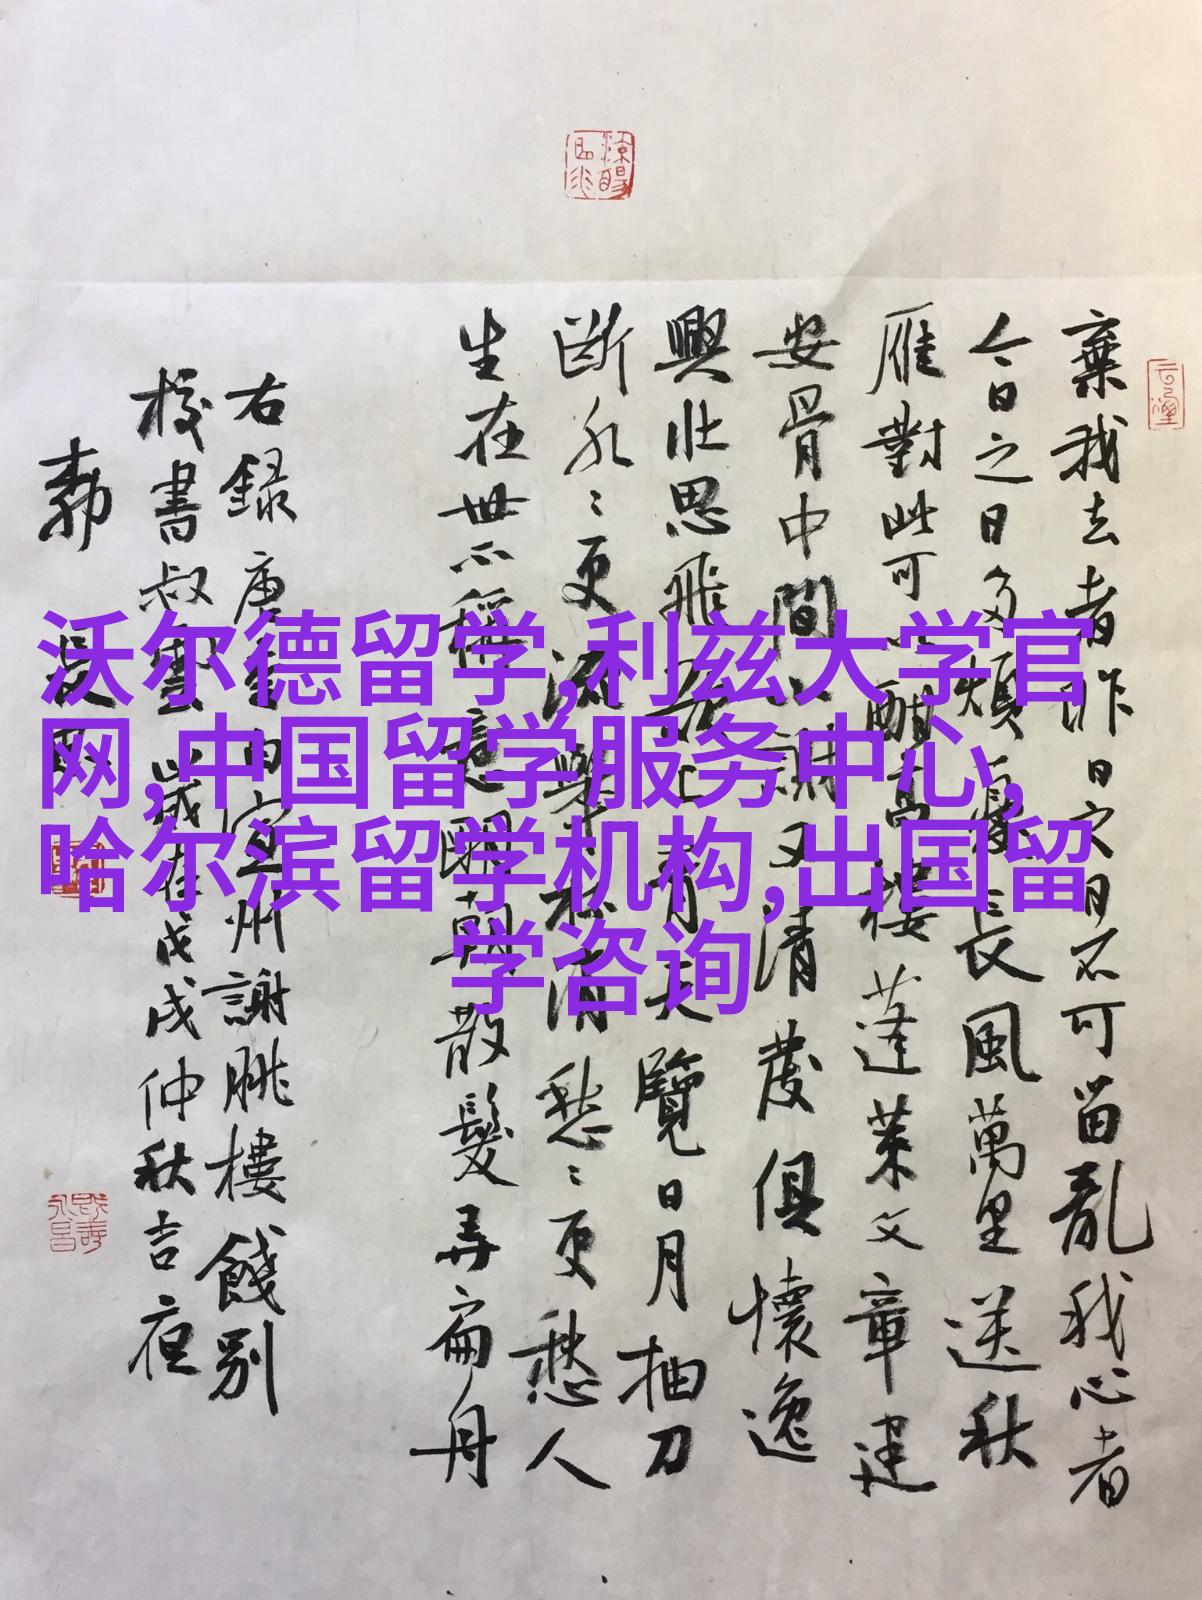 棄我去者昨日之日不可留亂我心者
今日之日多煩憂長風萬里送秋
雁對此可以酣高樓蓬萊文章建
安骨中間小謝又清發俱懷逸
興壯思飛欲上青天覽日月抽刀
斷水〻更流舉杯消愁〻更愁人
生在世不稱意明朝散髮弄扁舟
右録唐李白宣州謝朓樓餞別
校書叔雲歲在戊戌仲秋吉夜
沃尔德留学,利兹大学官
网,中国留学服务中心,
哈尔滨留学机构,出国留
学咨询